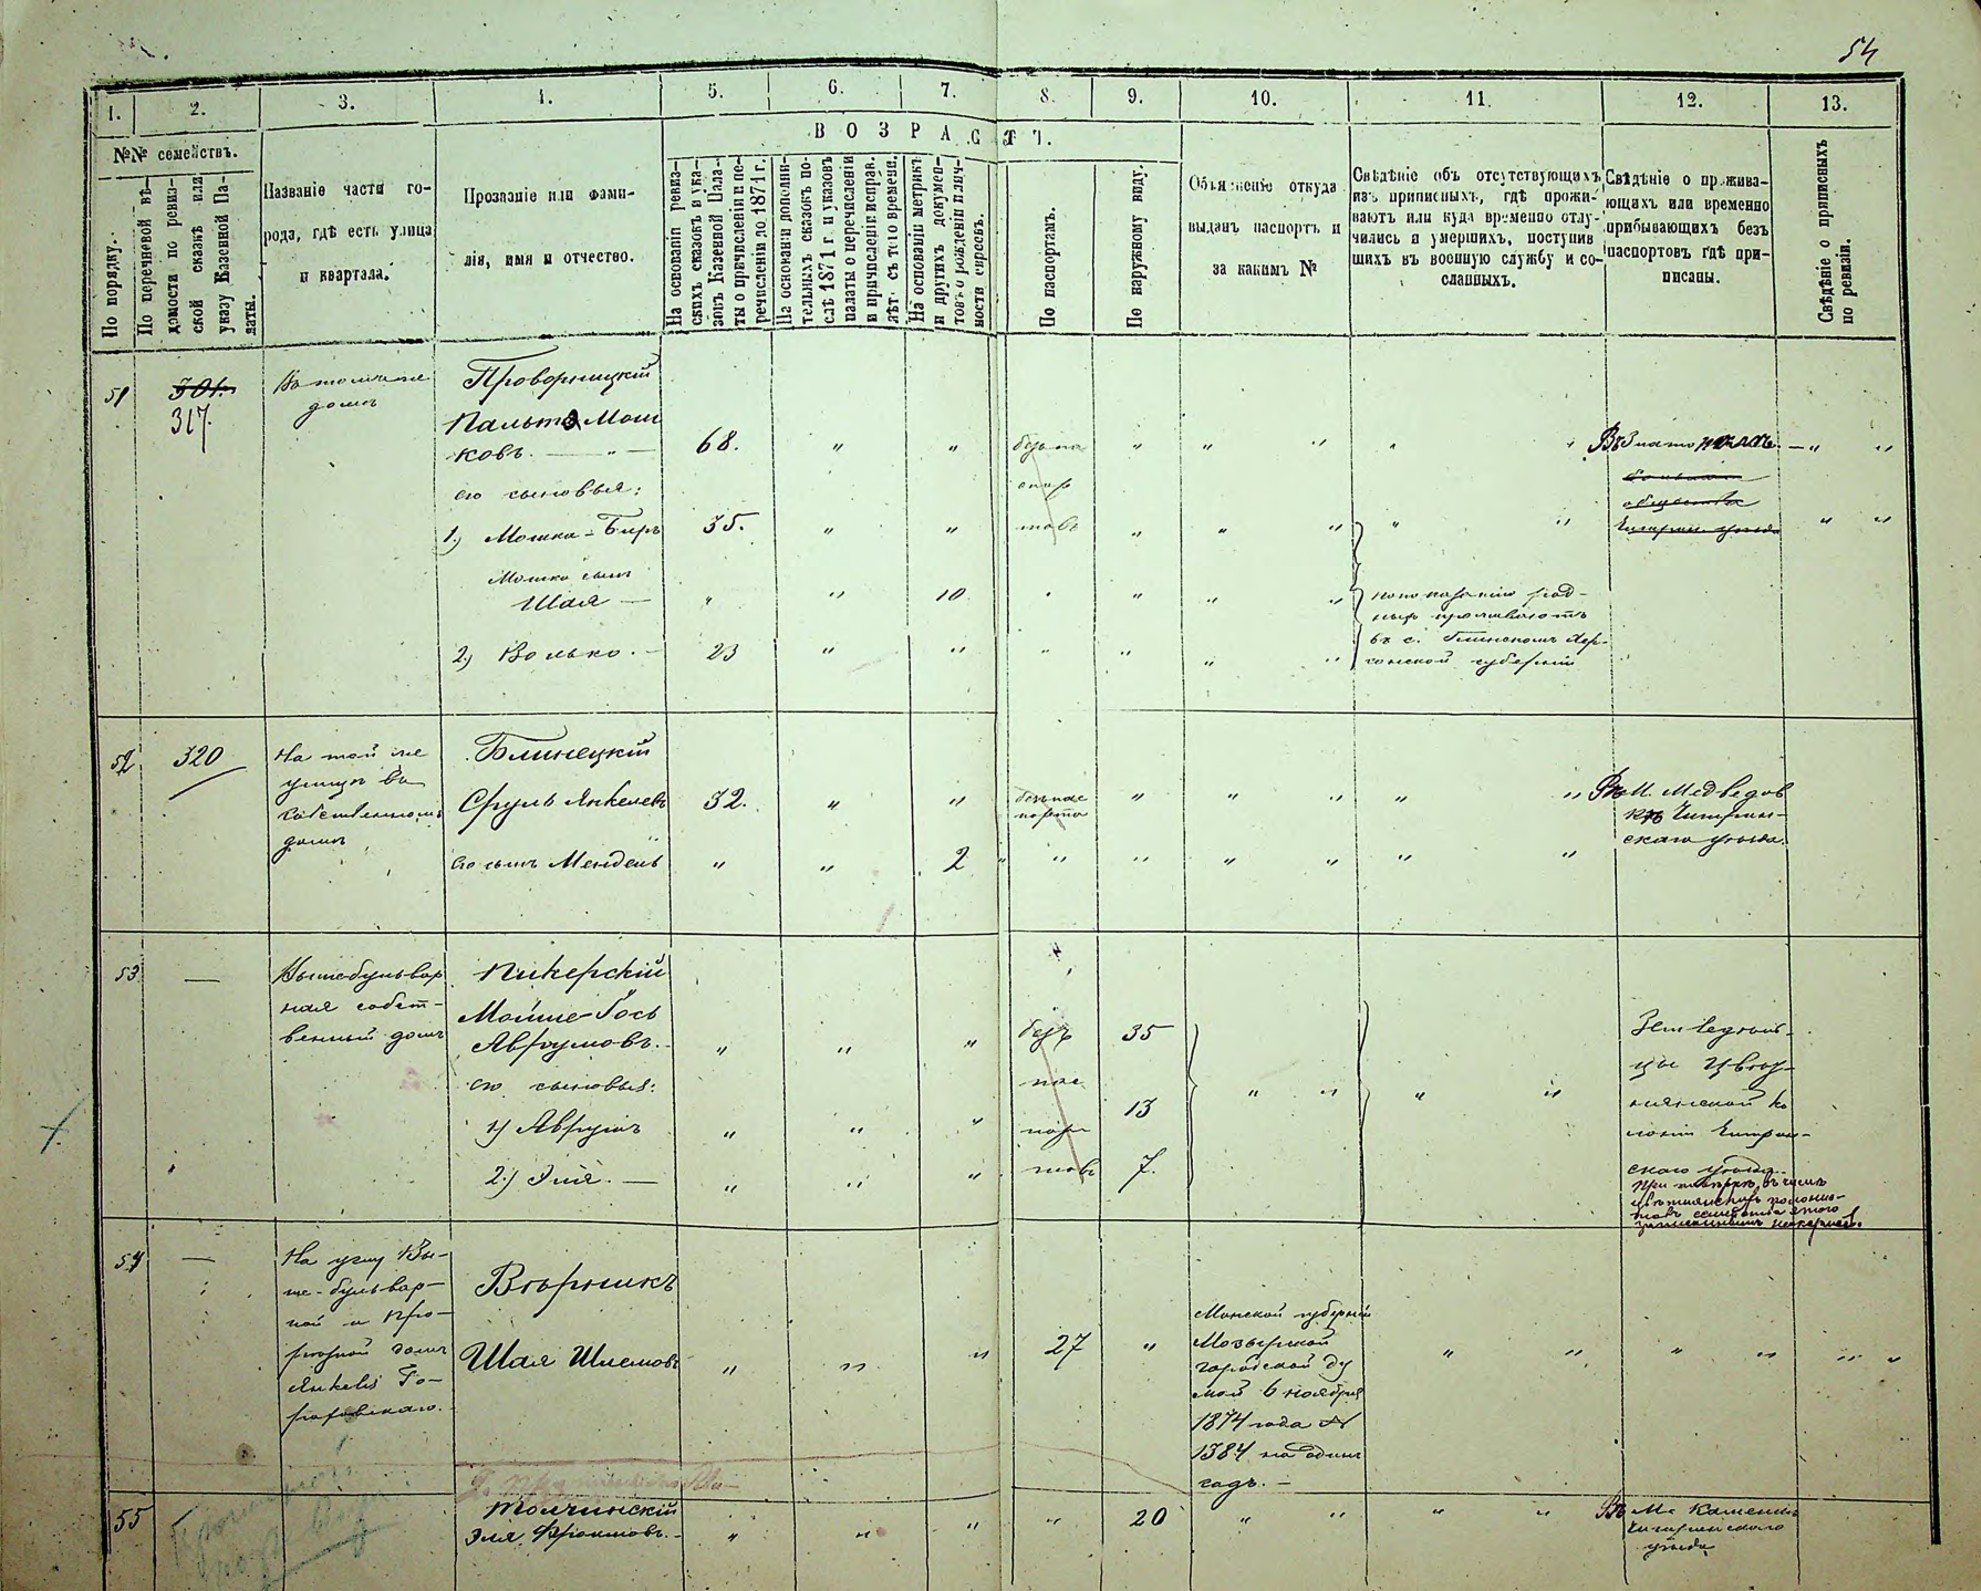 54
1. 2. 3. 4. 5. 6. 7. 8. 9. 10. 11. 12. 13.
№№ семействъ.
По порядку.
По перечневой вѣ-
домости по ревиз-
ской сказкѣ или
указу Казенной Па-
латы.
Названіе части го-
рода, гдѣ есть улица
и квартала.
Прозваніе или фами-
лія, имя и отчество.
ВОЗРАСТЪ.
На основаніи ревиз-
скихъ сказокъ и ука-
зовъ Казенной Пала-
ты о причисленіи и пе-
речисленіи до 1874 г.
На основаніи дополни-
тельныхъ сказокъ по-
слѣ 1871 г. и указовъ
палаты о перечисленіи
и причисленіи исправ.
лѣт. съ того времени.
На основаніи метрикъ
и другихъ докумен-
товъ о рожденіи и лич-
ности евреевъ.
По паспортамъ.
По наружному виду.
Объясненіе откуда
выданъ паспортъ и
за какимъ №
Свѣдѣніе объ отсутствующихъ
изъ приписныхъ, гдѣ прожи-
ваютъ или куда временно отлу-
чились и умершихъ, поступив
шихъ въ военную службу и со-
сланныхъ.
Свѣдѣніе о прожива-
ющихъ или временно
прибывающихъ безъ
паспортовъ гдѣ при-
писаны.
Свѣдѣніе о приписныхъ
по ревизіи.
51
301.
317.
Въ томъ же
домѣ
Проворницкій
Пальто Мош
ковъ. — " —
68. " "
безъ па
" " " " "
Въ Златополѣ. — " "
его сыновья:
спор
общества
1.) Мошка-Беръ
35. " "
товъ
" " " " "
Чигирин. уѣзда
" "
Мошко сынъ
Шая —
" " 10 " " " "
по показанію род-
ныхъ проживаютъ
въ с. Глинскомъ Хер-
сонской губерніи
2.) Волько. —
23 " " " " " "
52
320
На той же
улицѣ въ
собственномъ
домѣ
Блинецкій
Сруль Янкелевъ
32. " "
безъ пас
порта
" " " " "
Въ М. Медведов
кѣ Чигирин-
скаго уѣзда.
его сынъ Мендель
" " 2 " " " " " " "
53
—
Вышебульвар
ная собст-
венный домъ
Пикерскій
Мойше-Гось
Аврумовъ.
" " "
безъ
35
его сыновья:
пас
1) Аврумъ
" " "
пор
13
2.) Эля. —
" " "
товъ
7.
" " " "
Земледѣль-
цы Цвѣт-
нянской ко
лоніи Чигрин-
скаго уѣзда.
54
—
На углу Вы-
ше-бульвар-
ной и Про-
рѣзной домъ
Янкеля Го-
Вгорникъ
Шая Шлемовъ
" " "
27 "
Минской губерніи
Мозырской
городской ду
мой 6 ноября
1874 года №
1384 на одинъ
годъ. —
" " " " " "
55
Толчинскій
Эля Фроимовъ. —
" " " " 20 " " " "
Въ М. Каменкѣ
Чигиринскаго
уѣзда